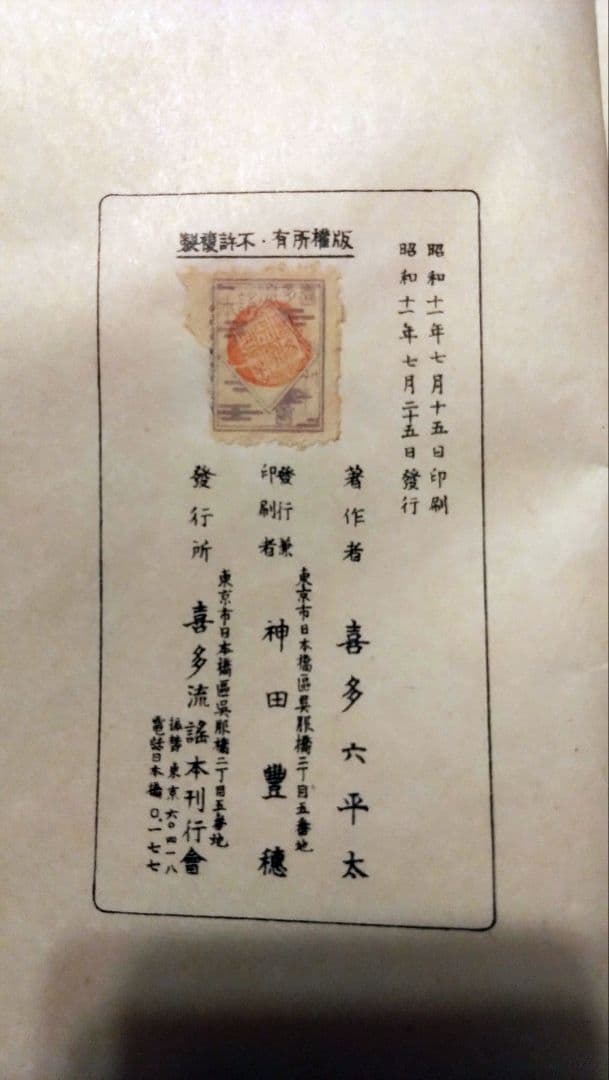 昭和十一年七月十五日印刷
昭和十一年七月二十五日發行
版權所有・不許複製
著作者 喜多六平太
東京市日本橋區吳服橋二丁目五番地
發行兼
印刷者 神田豐穗
東京市日本橋區吳服橋二丁目五番地
發行所 喜多流謠本刊行會
振替東京六〇四一八
電話日本橋〇一七七